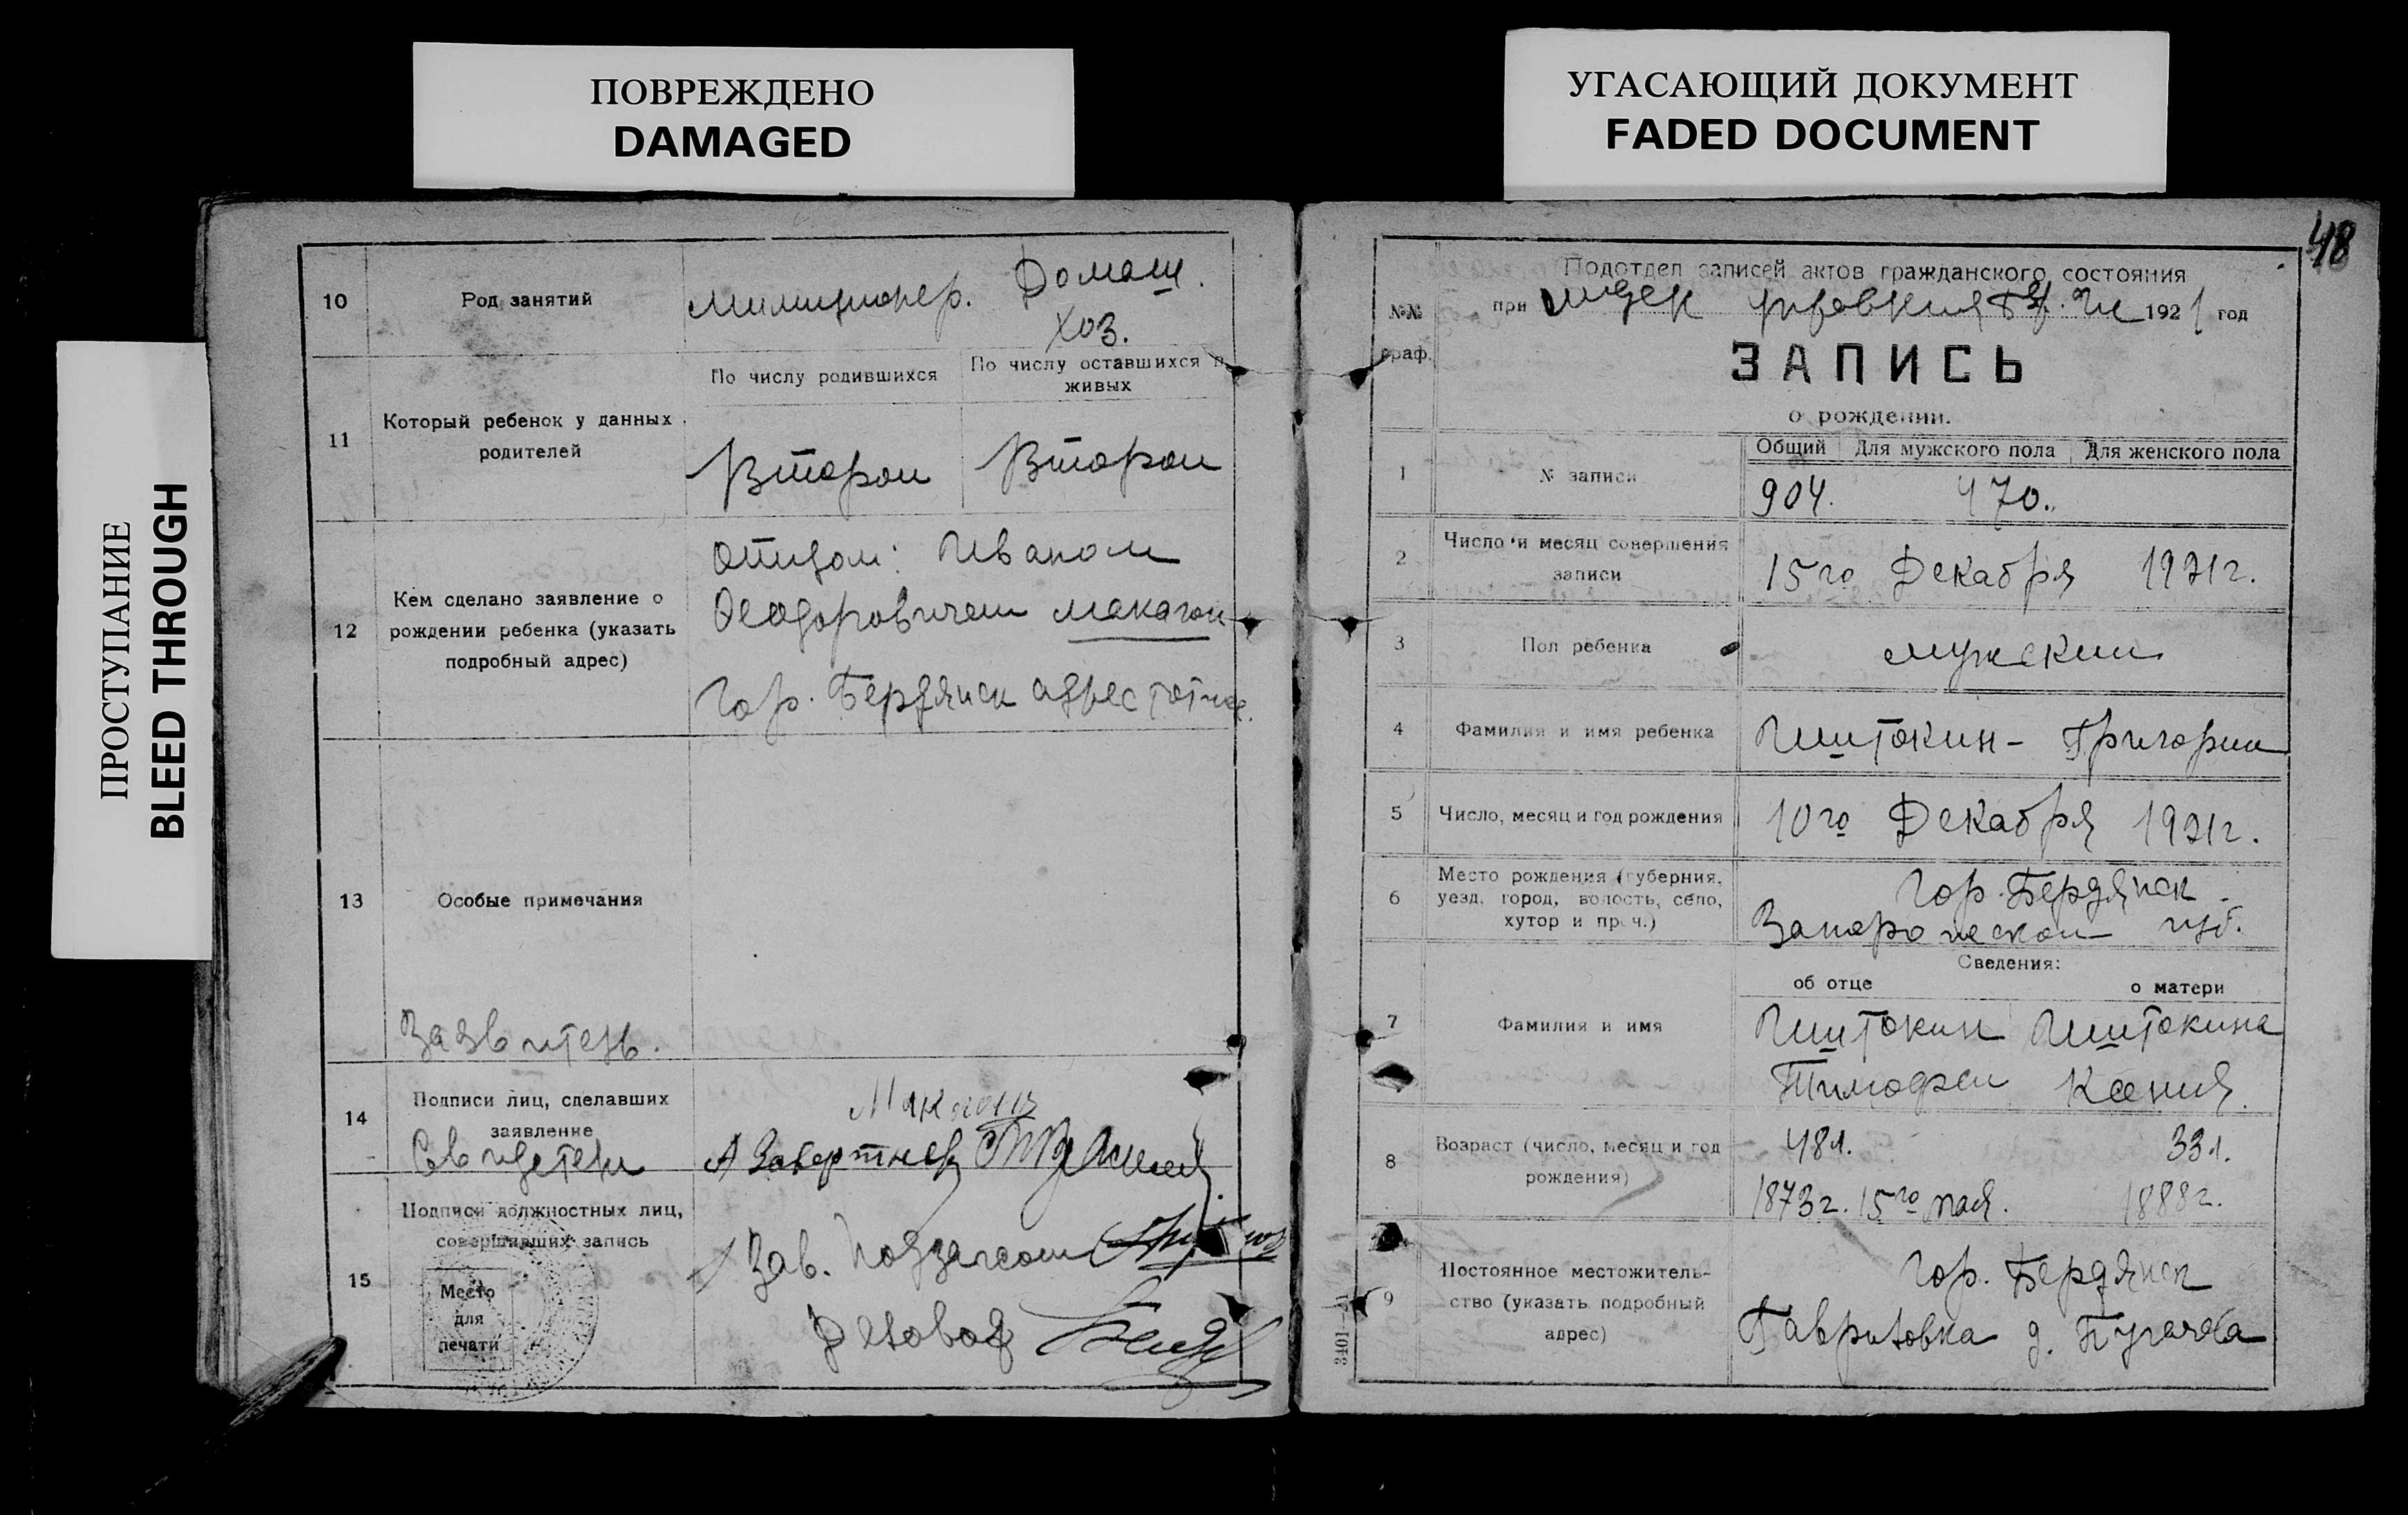 ПОВРЕЖДЕНО
DAMAGED
УГАСАЮЩИЙ ДОКУМЕНТ
FADED DOCUMENT
ПРОСТУПАНИЕ
BLEED THROUGH
10
Род занятий
милиционер.
Домаш.
хоз.
11
Который ребенок у данных
родителей
По числу родившихся
По числу оставшихся в
живых
Второй
Второй
12
Кем сделано заявление о
рождении ребенка (указать
подробный адрес)
отцом: Иваном
Феодоровичем Макагон
гор. Бердянск адрес тот же.
13
Особые примечания
Заявитель.
14
Подписи лиц, сделавших
заявление
Свидетели
Макагон
15
Подписи должностных лиц,
совершивших запись
Место
для
печати
Зав. Подзагсом
Деловод
48
№№
граф.
Подотдел записей актов гражданского состояния
при
1921 год
ЗАПИСЬ
о рождении.
1
№ записи
Общий Для мужского пола Для женского пола
904. 470.
2
Число и месяц совершения
записи
15го Декабря 1921г.
3
Пол ребенка
мужский
4
Фамилия и имя ребенка
Пштокин - Григорий
5
Число, месяц и год рождения
10го Декабря 1921г.
6
Место рождения (губерния,
уезд, город, волость, село,
хутор и проч.)
Гор. Бердянск
Запорожской губ.
Сведения:
об отце
о матери
7
Фамилия и имя
Тимофей
Ксения.
8
Возраст (число, месяц и год
рождения)
48л.
33л.
1873г. 15го мая.
1888г.
9
Постоянное местожитель-
ство (указать подробный
адрес)
Гор. Бердянск
Гавриловка д. Пугачева
3401—21